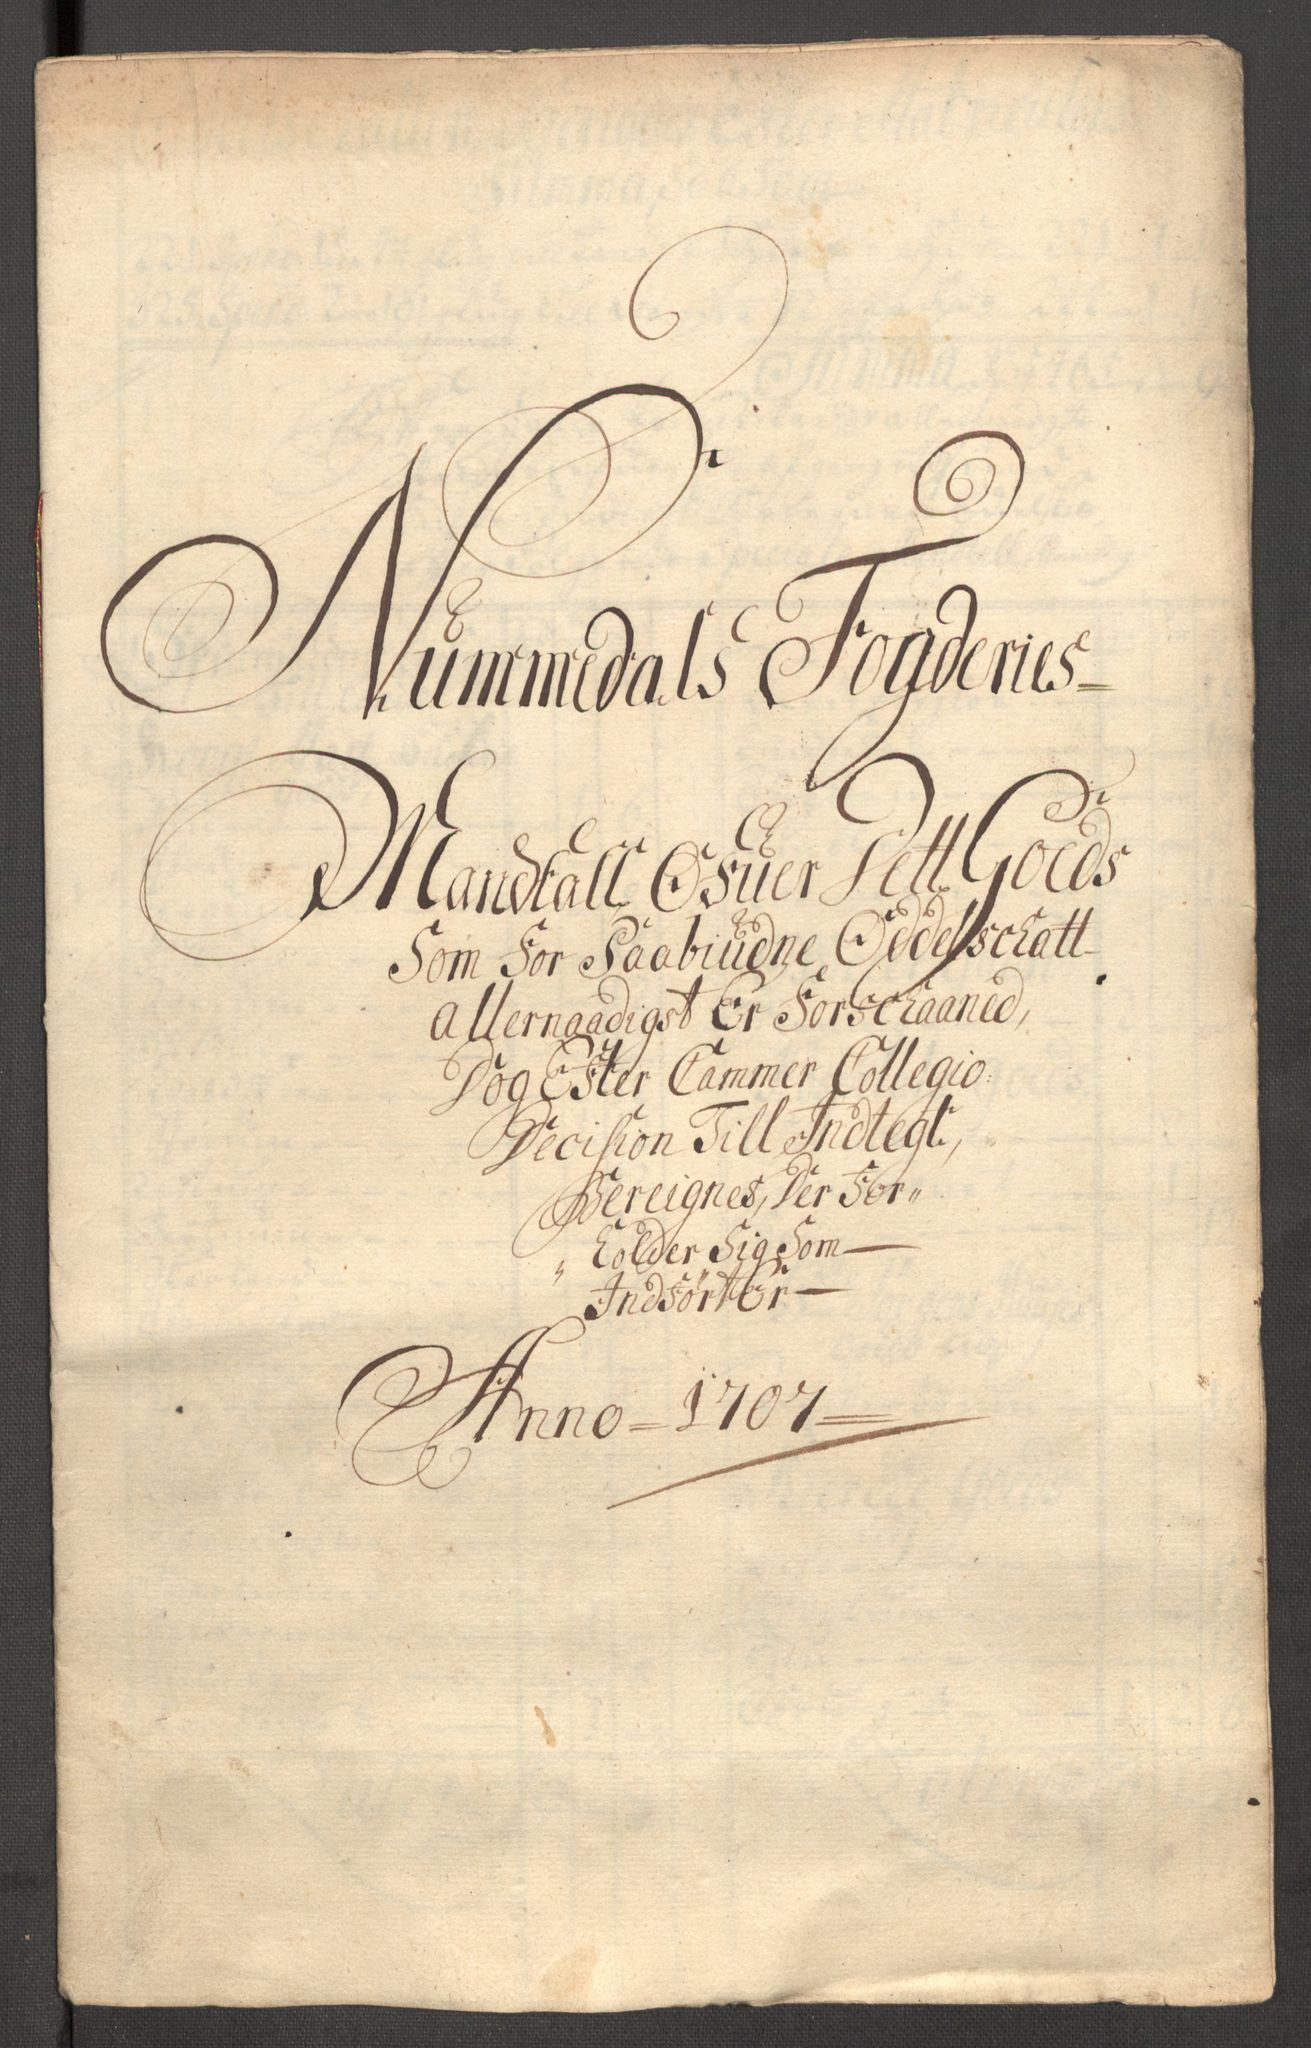 Nummedals Fogderies
Mandtall Ofuer Dett Goeds
Som for Paabiudne Oddelschatt
Allernaadigst Er Forschaaned,
Dog Efter Cammer Collegio
Decision Till Indtegt,
Bereignes, Der For„
„holder Sig Som
Indført Er
Anno 1707